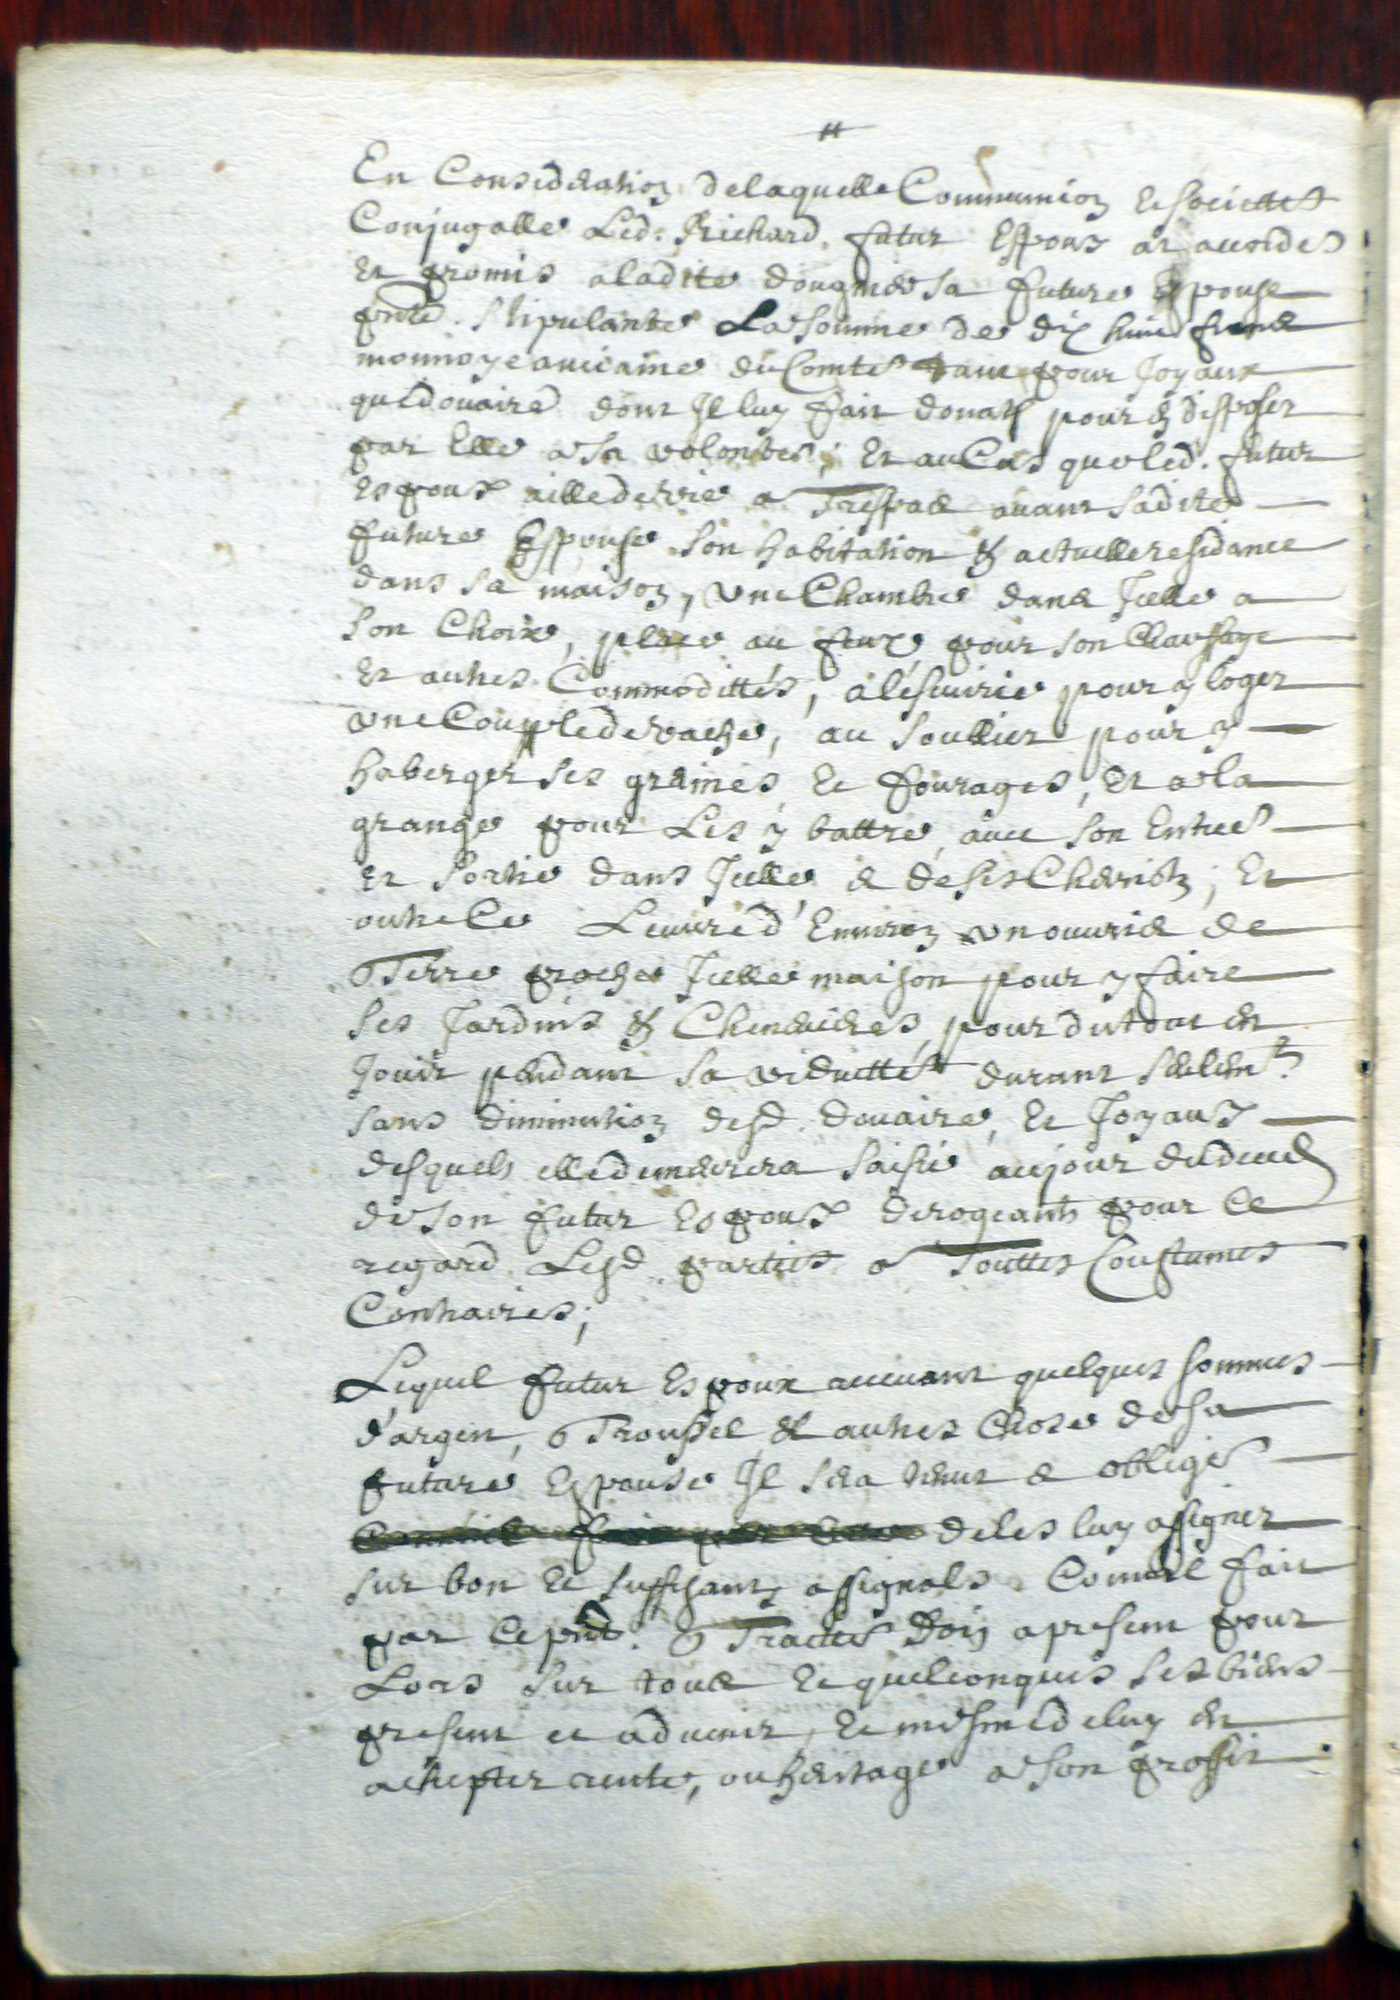 En Consideration delaquelle Communion et societtez
Conjugalle Led. Richard futur Espoux at accordez
Et promis a ladite dougnier sa future Espouse
pnte. stipulante La somme de dix huict francs
monnoye ancienne du Comtez tant pour Joyaux
que douaire dont Il luy fait donaon pour en disposer
par Elle a sa volontez; Et au Cas que led. futur
Espoux aille de vie a Trespas auant sadite
future Espouse son habitation & actuelle residance
dans sa maison, vne Chambre dans Icelle a
son Choix, place au feux pour son Chauffage
Et autres Commodittés, a l'escuirie pour y loger
vne Couple de vache, au soullier pour y
haberger ses graines et fourages, Et a la
grange pour Les y battre auec son Entrez
et sortie dans Icelle et de ses Cheriotz; Et
outre Ce Leuure d'Enuiron vn ouurier de
Terre proche Icelle maison pour y faire
ses Jardins & Cheneuieres, pour du tout en
Jouir pendant sa viduittéz durant seulemt
sans diminution desd. douaire, et Joyaux
desquels elle demeurera saisie au jour du deces
de son futur Espoux derogeants pour Ce
regard Lesd. parties a Touttes Coustumes
Contraires;
Lequel futur Espoux receuant quelques sommes
d'argent, Troussel & autres Chose de sa
future Espouse Il sera tenut et obligéz
de les luy assigner
sur bon et suffisants assignals Comme Il fait
par Ce pnt. Traictez Dois a present pour
Lors sur tous et quelconques ses biens
present et aduenir, et mesme de luy en
achepter rente, ou heritage a son proffit